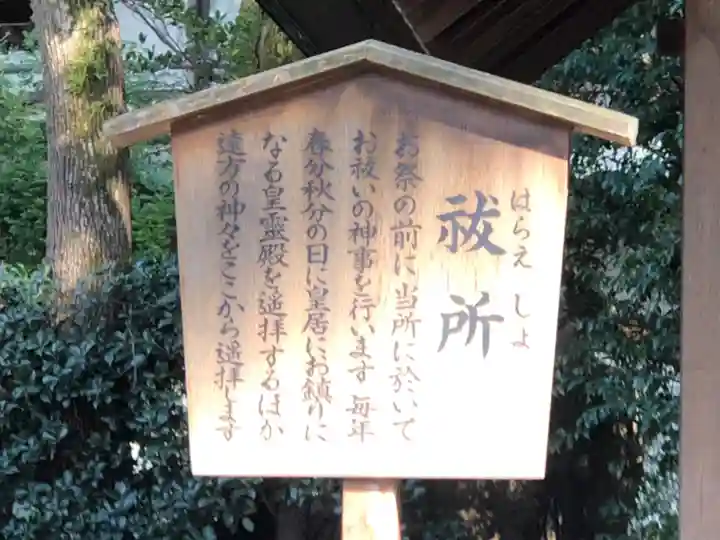 はらえ しょ
祓所
お祭の前に当所に於いて
お祓いの神事を行います 毎年
春分秋分の日に皇居にお鎮りに
なる皇靈殿を遥拝するほか
遠方の神々をここから遥拝します